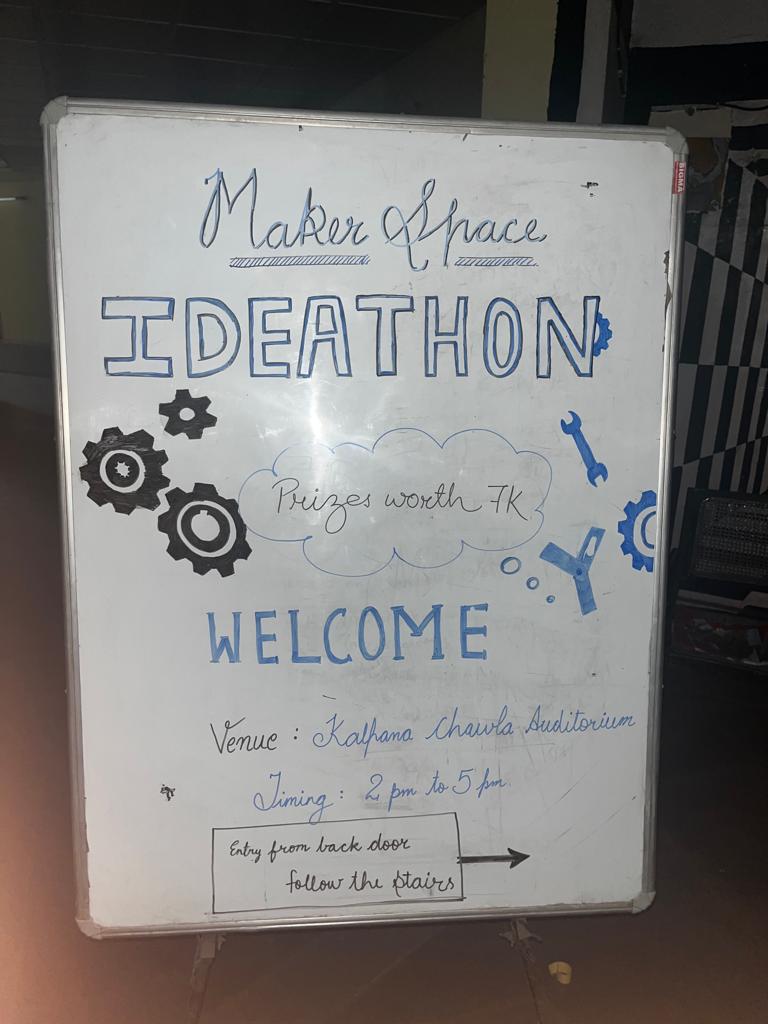 SIGMA
Maker Space
IDEATHON
Prizes worth 7K
WELCOME
Venue : Kalpana Chawla Auditorium
Timing : 2 pm to 5 pm.
Entry from back door
follow the stairs